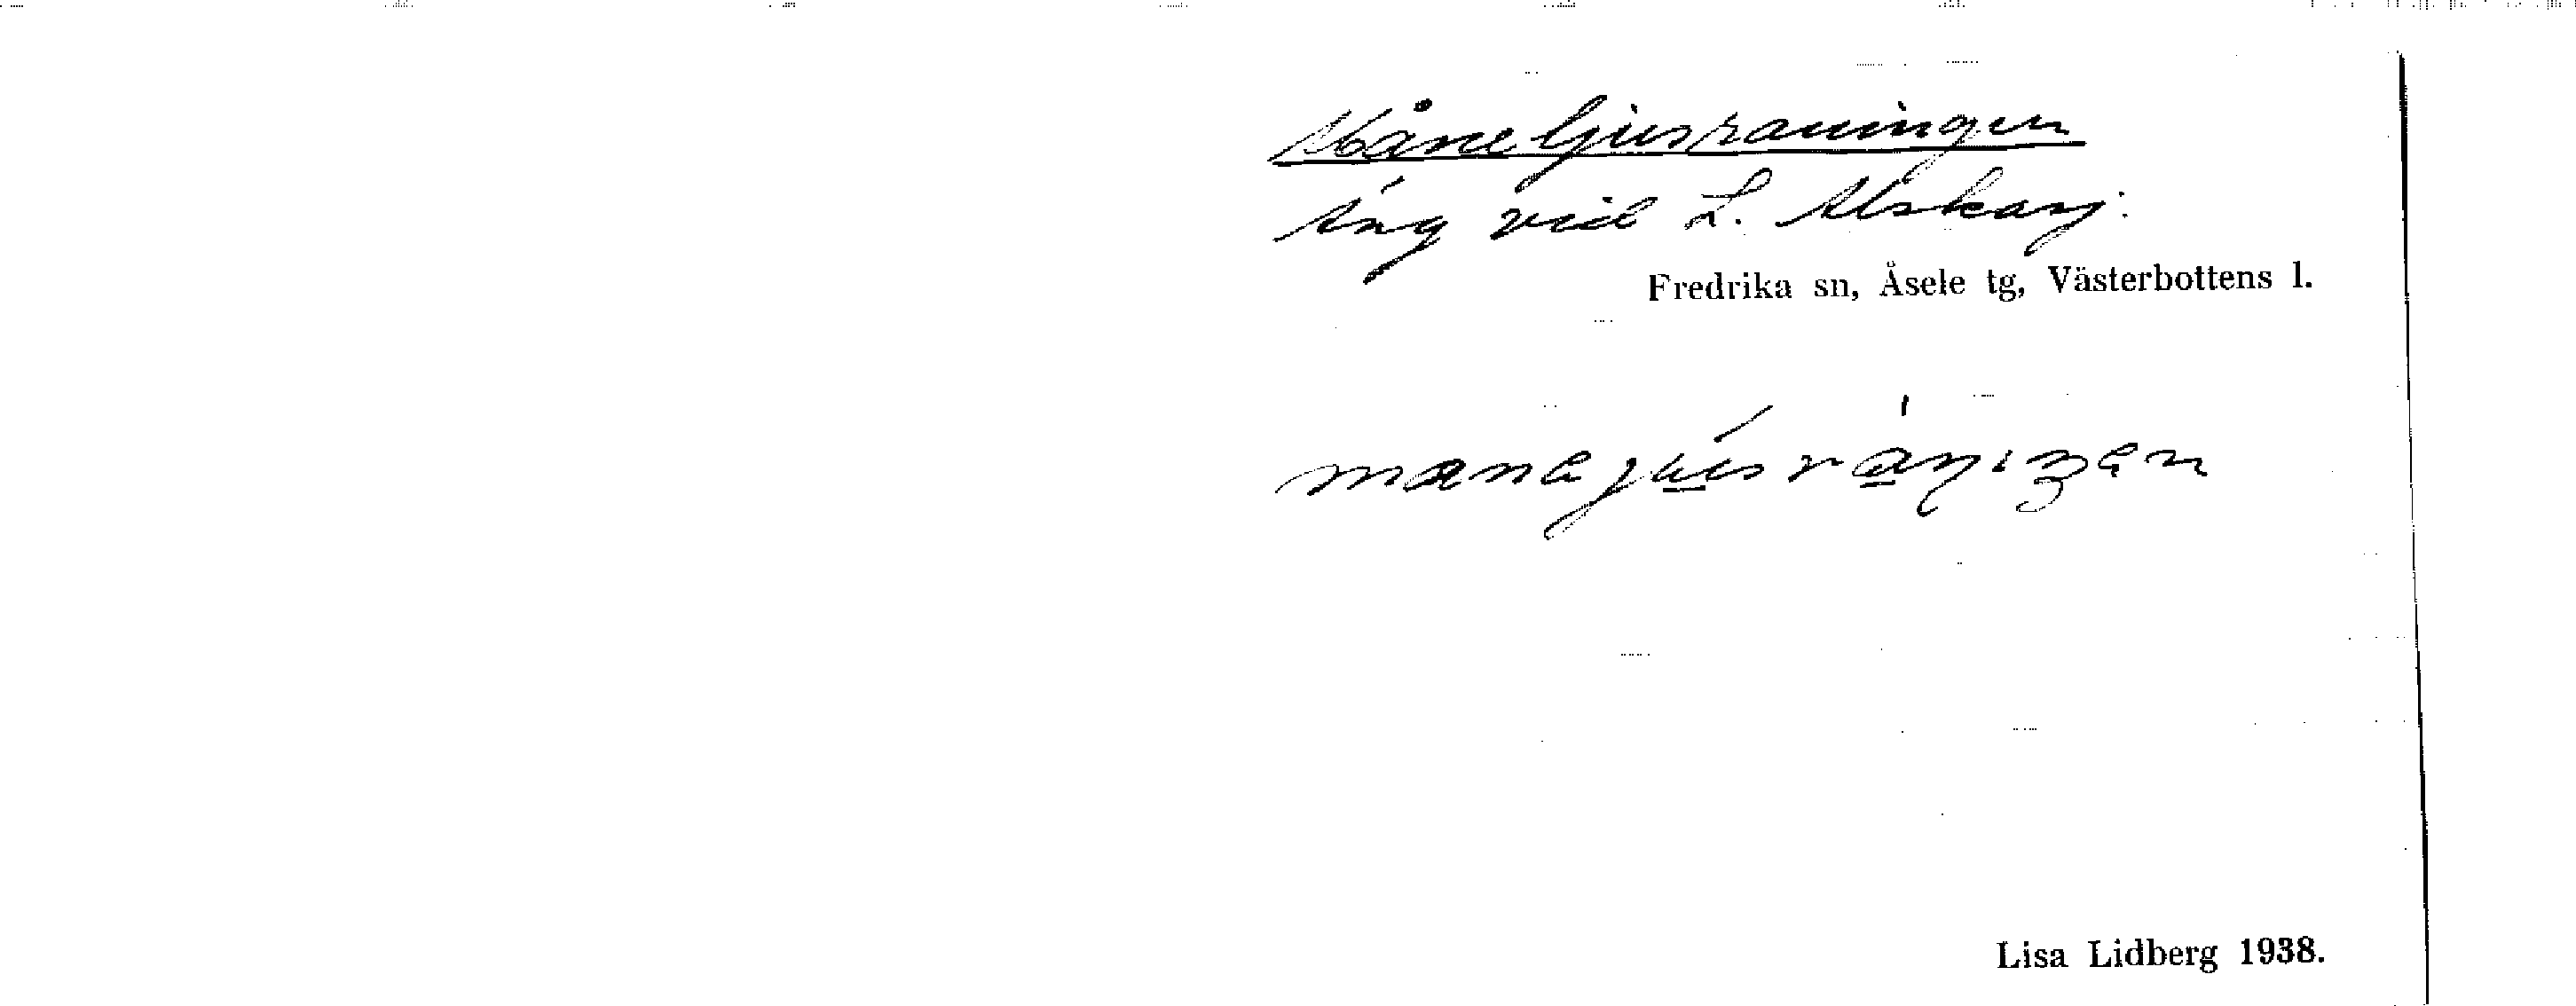 Måneljusraningen
äng vid L. Alskasj.
Fredrika sn, Åsele tg, Västerbottens l.
Lisa Lidberg 1938.